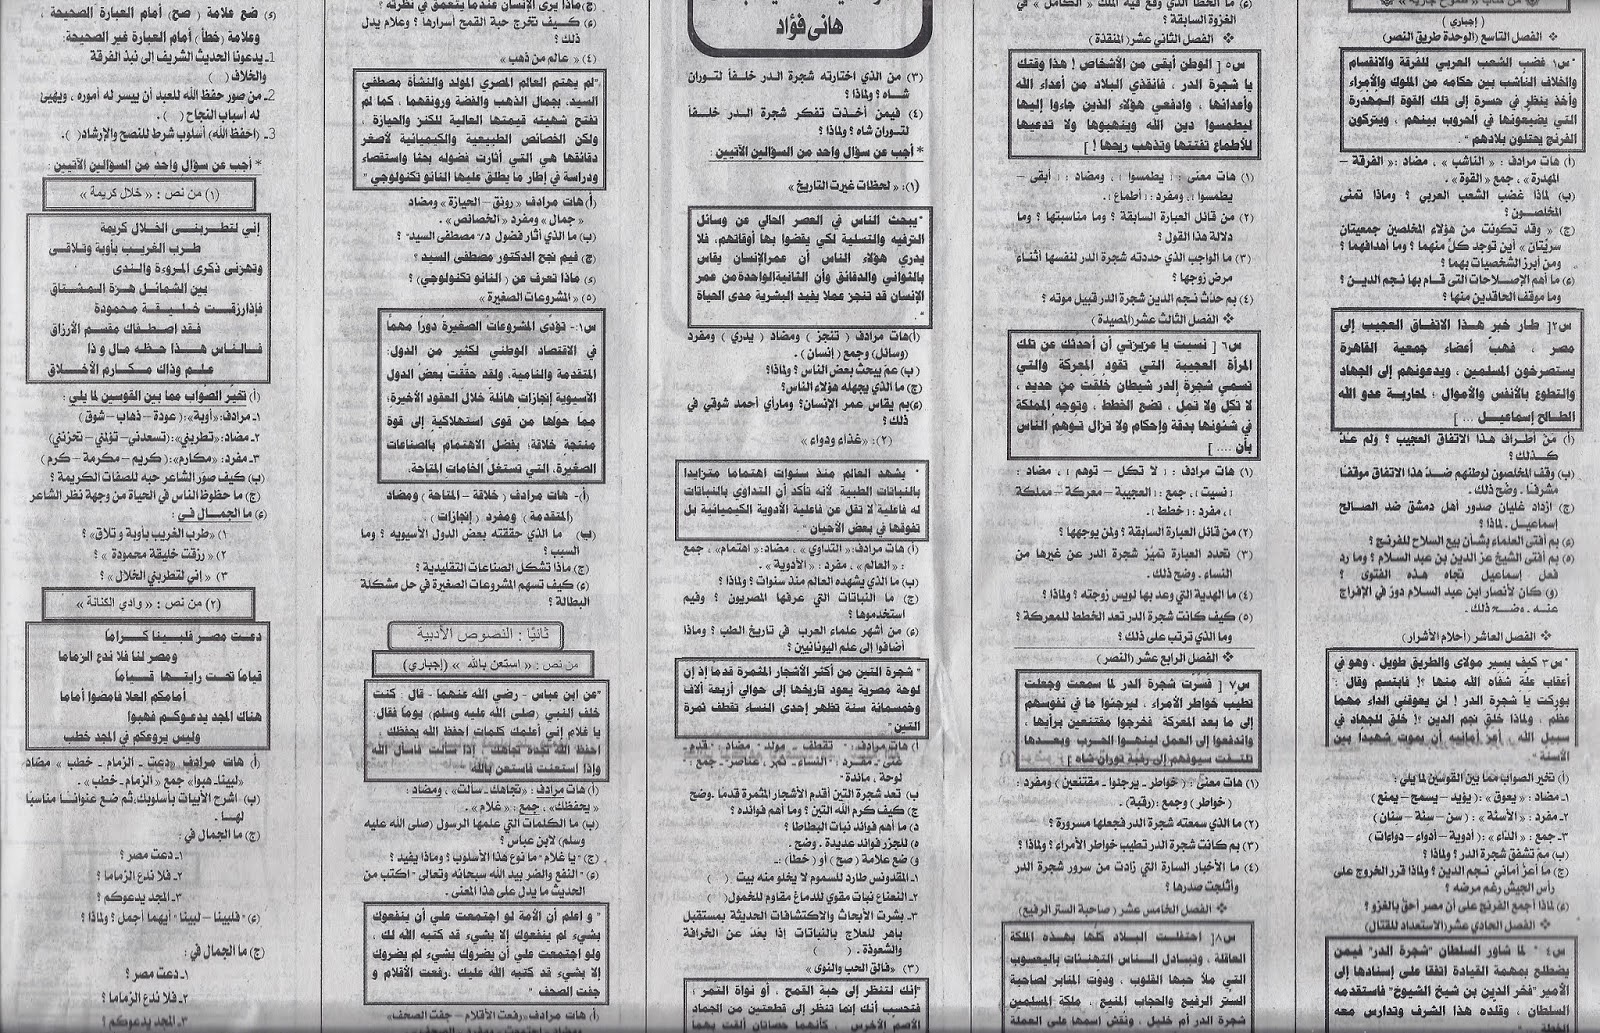 من كتاب « طموح جارية »
( إجبارى )
❖ الفصل التاسع (الوحدة طريق النصر)
"س١ غضب الشعب العربي للفرقة والانقسام
والخلاف الناشب بين حكامه من الملوك والأمراء
وأخذ ينظر في حسرة إلى تلك القوة المهدرة
التي يضيعونها في الحروب بينهم ، ويتركون
الفرنج يحتلون بلادهم "
(أ) هات مرادف : « الناشب » ، مضاد : « الفرقة –
المهدرة » ، جمع « القوة» .
(ب) لماذا غضب الشعب العربي ؟ وماذا تمنّى
المخلصون ؟
(ج) « وقد تكونت من هؤلاء المخلصين جمعيتان
سريّتان » أين توجد كلّ منهما ؟ وما أهدافهما ؟
ومن أبرز الشخصيات بهما ؟
(ء) ما أهم الإصلاحات التى قام بها نجم الدين ؟
وما موقف الحاقدين منها ؟
س٢[ طار خبرُ هذا الاتفاق العجيب إلى
مصر ، فهبّ أعضاء جمعية القاهرة
يستصرخون المسلمين ، ويدعونهم إلى الجهاد
والتطوع بالأنفس والأموال ؛ لمحاربة عدو الله
الطالح إسماعيل .... ]
(أ) مَن أطراف هذا الاتفاق العجيب ؟ ولم عُدّ
كذلك ؟
(ب) وقف المخلصون لوطنهم ضدّ هذا الاتفاق موقفًا
مشرفًا . وضّح ذلك .
(ج) ازداد غليان صدور أهل دمشق ضد الصالح
إسماعيل . لماذا ؟
(ء) بم أفتى العلماء بشأن بيع السلاح للفرنج ؟
(ه) بم أفتى الشيخ عز الدين بن عبد السلام ؟ وما رد
فعل إسماعيل تجاه هذه الفتوى ؟
(و) كان لأنصار ابن عبد السلام دورٌ في الإفراج
عنه . وضح ذلك .
❖ الفصل العاشر (أحلام الأشرار)
"س٣ كيف يسير مولاى والطريق طويل ، وهو في
أعقاب علة شفاه الله منها ؟! فابتسم وقال :
بوركت يا شجرة الدر ! لن يعوقني الداء مهما
عظم ، ولماذا خُلق نجم الدين ؟! خُلق للجهاد في
سبيل الله ، أعز أمانيه أن يموت شهيدا بين
الأسنة "
(أ) تخير الصواب مما بين القوسين لما يلي :
١ـ مضاد : « يعوق» : (يؤيد – يسمح – يمنع)
٢ـ مفرد : « الأسنّة » : (سن – سنة – سنان)
٣ـ جمع : «الدّاء» : (أدوية – أدواء – دواءات)
(ب) ممّ تشفق شجرة الدر ؟ ولماذا ؟
(ج) ما أعز أماني نجم الدين ؟ ولماذا قرر الخروج على
رأس الجيش رغم مرضه ؟
(ء) لماذا أجمع الفرنج على أن مصر أحقّ بالغزو ؟
❖ الفصل الحادي عشر (الاستعداد للقتال)
س٤ " لما شاور السلطان "شجرة الدر" فيمن
يضطلع بمهمة القيادة اتفقا على إسنادها إلى
الأمير "فخر الدين بن شيخ الشيوخ" فاستقدمه
السلطان ، وقلده هذا الشرف وتدارس معه
(ء) ما الخطأ الذي وقع فيه الملك « الكامل » في
الغزوة السابقة ؟
❖ الفصل الثاني عشر (المنقذة)
س٥ [ الوطن أبقى من الأشخاص ! هذا وقتك
يا شجرة الدر ، فأنقذي البلاد من أعداء الله
وأعدائها ، وادفعي هؤلاء الذين جاءوا إليها
ليطمسوا دين الله وينهبوها ولا تدعيها
للأطماع تفتتها وتذهب ريحها ! ]
(١) هات معنى : [ يطمسوا ] ، ومضاد : [ أبقى –
يطمسوا ] ، ومفرد : [ أطماع ] .
(٢) من قائل العبارة السابقة ؟ وما مناسبتها ؟ وما
دلالة هذا القول ؟
(٣) ما الواجب الذي حددته شجرة الدر لنفسها أثناء
مرض زوجها ؟
(٤) بم حدّث نجم الدين شجرة الدر قبيل موته ؟
❖ الفصل الثالث عشر (المصيدة)
س٦ [ نسيت يا عزيزتي أن أحدثك عن تلك
المرأة العجيبة التي تقود المعركة والتي
تسمى شجرة الدر شيطان خلقت من حديد ،
لا تكل ولا تمل ، تضع الخطط ، وتوجه المملكة
في شئونها بدقة وإحكام ولا تزال توهم الناس
بأن .... ]
(١) هات مرادف : [ لا تكل – توهم ] ، مضاد :
[نسيت] ، جمع : [العجيبة – معركة – مملكة
] ، مفرد : [خطط] .
(٢) من قائل العبارة السابقة ؟ ولمن يوجهها ؟
(٣) تحدد العبارة تميّز شجرة الدر عن غيرها من
النساء . وضح ذلك .
(٤) ما الهدية التي وعد بها لويس زوجته ؟ ولماذا ؟
(٥) كيف كانت شجرة الدر تعد الخطط للمعركة ؟
وما الذي ترتب على ذلك ؟
❖ الفصل الرابع عشر (النصر)
س٧ [ فسرت شجرة الدر لما سمعت وجعلت
تطيب خواطر الأمراء ، ليرجئوا ما في نفوسهم
إلى ما بعد المعركة فخرجوا مقتنعين برأيها ،
واندفعوا إلى العمل لينهوا الحرب وبعدها
تلتفت سيوفهم إلى رقبة توران شاه ]
(١) هات معنى : (خواطر ـ يرجئوا ـ مقتنعين) ومفرد :
(خواطر) وجمع : (رقبة) .
(٢) ما الذي سمعته شجرة الدر فجعلها مسرورة ؟
(٣) بم كانت شجرة الدر تطيب خواطر الأمراء ؟ ولماذا ؟
(٤) ما الأخبار السارة التي زادت من سرور شجرة الدر
وأثلجت صدرها ؟
❖ الفصل الخامس عشر (صاحبة الستر الرفيع)
س٨[ احتفلت البلاد كلها بهذه الملكة
العاقلة ، وتبادل الناس التهنئات باليعسوب
التي ملأ حبها القلوب ، ودوّت المنابر لصاحبة
الستر الرفيع والحجاب المنيع ، ملكة المسلمين
شجرة الدر أم خليل ، ونقش اسمها على العملة
هانى فؤاد
(٣) من الذي اختارته شجرة الدر خلفاً لتوران
شاه ؟ ولماذا ؟
(٤) فيمن أخذت تفكر شجرة الدر خلفاً
لتوران شاه ؟ ولماذا ؟
* أجب عن سؤال واحد من السؤالين الآتيين :
(١) : « لحظات غيرت التاريخ »
"يبحث الناس في العصر الحالي عن وسائل
الترفيه والتسلية لكي يقضوا بها أوقاتهم، فلا
يدري هؤلاء الناس أن عمر الإنسان يقاس
بالثواني والدقائق وأن الثانية الواحدة من عمر
الإنسان قد تنجز عملا يفيد البشرية مدى الحياة
"
(أ) هات مرادف ( تنجز ) ومضاد ( يدري ) ومفرد
(وسائل) وجمع ( إنسان) .
(ب) عمّ يبحث بعض الناس ؟ ولماذا؟
(ج) ما الذي يجهله هؤلاء الناس؟
(ء) بم يقاس عمر الإنسان؟ وما رأى أحمد شوقي في
ذلك ؟
(٢) : «غذاء ودواء »
" يشهد العالم منذ سنوات اهتماما متزايدا
بالنباتات الطبية لأنه تأكد أن التداوي بالنباتات
له فاعلية لا تقل عن فاعلية الأدوية الكيميائية بل
تفوقها في بعض الأحيان "
(أ) هات مرادف: « التداوي » ، مضاد: « اهتمام» ، جمع
: « العالم» ، مفرد : « الأدوية» .
(ب) ما الذي يشهده العالم منذ سنوات ؟ ولماذا ؟
(ج) ما النباتات التي عرفها المصريون ؟ وفيم
استخدموها ؟
(ء) من أشهر علماء العرب في تاريخ الطب ؟ وماذا
أضافوا إلى علم اليونانيين ؟
" شجرة التين من أكثر الأشجار المثمرة قدما إذ إن
لوحة مصرية يعود تاريخها إلى حوالي أربعة آلاف
وخمسمائة سنة تظهر إحدى النساء تقطف ثمرة
التين "
أ) هات مرادف : " تقطف ـ مولد " مضاد : " قدم ـ
غنى ـ مفرد : " النساء ـ ثمر ، عناصر ـ جمع : "
لوحة ، مائدة "
ب) تعد شجرة التين أقدم الأشجار المثمرة قدمًا . وضح
ج) كيف كرم الله التين ؟ وما أهم فوائده ؟
د) ما أهم فوائد نبات البطاطا ؟
ه) للجزر فوائد عديدة . وضح .
و) ضع علامة ( صح ) أو ( خطأ ) :ـ
١ـ المقدونس طارد للسموم لا يخلو منه بيت ( )
٢ـ النعناع نبات مقوى للدماغ مقاوم للخمول( )
٣ـ بشرت الأبحاث والاكتشافات الحديثة بمستقبل
باهر للعلاج بالنباتات إذا بعد عن الخرافة
والشعوذة . ( )
(٣) « فالق الحب والنوى »
"إنك لتنظر إلى حبة القمح ، أو نواة التمر ،
فتحسب أنك إنما تنظر إلى قطعتين من الجماد
الأصم الأخرس ، كأنهما حصاتان ألقت بهما
(ج) ماذا يرى الإنسان عندما يتعمق في نظرته ؟
(ء) كيف تخرج حبة القمح أسرارها ؟ وعلام يدل
ذلك ؟
(٤) « عالم من ذهب »
"لم يهتم العالم المصري المولد والنشأة مصطفى
السيد، بجمال الذهب والفضة ورونقهما ، كما لم
تفتح شهيته قيمتها العالية للكنز والحيازة ،
ولكن الخصائص الطبيعية والكيميائية لأصغر
دقائقها هي التي أثارت فضوله بحثا واستقصاء
ودراسة في إطار ما يطلق عليها النانو تكنولوجي "
(أ) هات مرادف «رونق – الحيازة » ومضاد
«جمال » ومفرد « الخصائص» .
(ب) ما الذي أثار فضول د/" مصطفى السيد" ؟
(ج) فيم نجح الدكتور مصطفى السيد ؟
(ء) ماذا تعرف عن ( النانو تكنولوجي) ؟
(٥) « المشروعات الصغيرة »
س١ـ تؤدّى المشروعات الصغيرةُ دورًا مهمًا
في الاقتصاد الوطني لكثير من الدول:
المتقدمة والنامية، ولقد حققت بعض الدول
الآسيوية إنجازات هائلة خلال العقود الأخيرة،
ممّا حولها من قوى استهلاكية إلى قوة
منتجة خلاقة، بفضل الاهتمام بالصناعات
الصغيرة، التي تستغل الخامات المتاحة.
أ)- هات مرادف ( خلاقة – المتاحة ) ومضاد
(المتقدمة ) ومفرد ( إنجازات) .
(ب) ما الذي حققته بعض الدول الآسيويه ؟ وما
السبب ؟
(ج) ماذا تشكل الصناعات التقليدية ؟
(ء) كيف تسهم المشروعات الصغيرة في حل مشكلة
البطالة ؟
ثانيًا : النصوص الأدبية
من نص : « استعن بالله » (إجباري)
"عن ابن عباس - رضي الله عنهما - قال : كنت
خلف النبي (صلى الله عليه وسلم) يوماً فقال:
يا غلام إني أعلمك كلمات احفظ الله يحفظك ،
احفظ الله تجده تجاهك ، إذا سألت فاسأل الله
وإذا استعنت فاستعن بالله
(أ) هات مرادف : «تجاهك ـ سألت» ، ومضاد :
« يحفظك» ، جمع : « غلام» .
(ب) ما الكلمات التي علمها الرسول (صلى الله عليه
وسلم) لابن عباس ؟
(ج) " يا غلام " ما نوع هذا الأسلوب ؟ وماذا يفيد ؟
(ء) " النفع والضر بيد الله سبحانه وتعالى " اكتب من
الحديث ما يدل على هذا المعنى .
" و اعلم أن الأمة لو اجتمعت على أن ينفعوك
بشيء لم ينفعوك إلا بشيء قد كتبه الله لك ،
ولو اجتمعت على أن يضروك بشيء لم يضروك
إلا بشيء قد كتبه الله عليك ،رفعت الأقلام و
جفت الصحف "
(أ) هات مرادف «رفعت الأقلام – جفت الصحف»
(ء) ضع علامة ( صح) أمام العبارة الصحيحة
وعلامة (خطأ ) أمام العبارة غير الصحيحة:
1ـ يدعونا الحديث الشريف إلى نبذ الفرقة
والخلاف ( )
2ـ من صور حفظ الله للعبد أن ييسر له أموره ، ويهيئ
له أسباب النجاح ( ) .
3ـ (احفظ الله) أسلوب شرط للنصح والإرشاد( ).
* أجب عن سؤال واحد من السؤالين الآتيين :
(١) من نص : « خلال كريمة »
إني لتطربنى الخلال كريمة
طرب الغريب بأوبة وتلاقى
وتهزنى ذكرى المروءة والندى
بين الشمائل هزة المشتاق
فإذا رزقت خليقة محمودة
فقد اصطفاك مقسم الأرزاق
فالناس هذا حظه مال و ذا
علم وذاك مكارم الأخلاق
(أ) تخيّر الصّواب مما بين القوسين لما يلي :
١ـ مرادف: «أوبة»: (عودة – ذهاب – شوق )
٢ـ مضاد: «تطربني»: (تسعدني – تؤلمني – تحزنني)
٣ـ مفرد: «مكارم»: (كريم – مكرمة – كرم )
(ب) كيف صور الشاعر حبه للصفات الكريمة ؟
(ج) ما حظوظ الناس في الحياة من وجهة نظر الشاعر
(ء) ما الجمال في :
١) «طرب الغريب بأوبة و تلاق» ؟
٢) « رزقت خليقة محمودة » ؟
٣) « إني لتطربني الخلال» ؟
(٢) من نص : « وادي الكنانة »
دعت مصر فلبينا كراما
ومصر لنا فلا ندع الزماما
قياماً تحت رايتها قياماً
أمامكم العلا فامضوا أماما
هناك المجد يدعوكم فهبوا
وليس يروعكم في المجد خطب
(أ) هات مرادف «دعت ـ الزمام ـ خطب » مضاد
«لبينا ـ هبوا» جمع «الزمام ـ خطب» .
(ب) اشرح الأبيات بأسلوبك، ثم ضع عنوانًا مناسبًا
لها .
(ج) ما الجمال في :
١ـ دعت مصر ؟
٢ـ فلا ندع الزماما ؟
٣ـ المجد يدعوكم ؟
(ء) " فلبينا – لبينا " أيهما أجمل ؟ ولماذا ؟
(ج) ما الجمال في :
١ـ دعت مصر ؟
٢ـ فلا ندع الزماما ؟
٣ـ المجد يدعوكم ؟